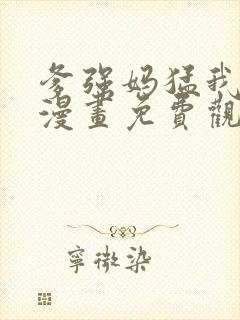 爹强妈猛我
漫畫免費觀
寧微染